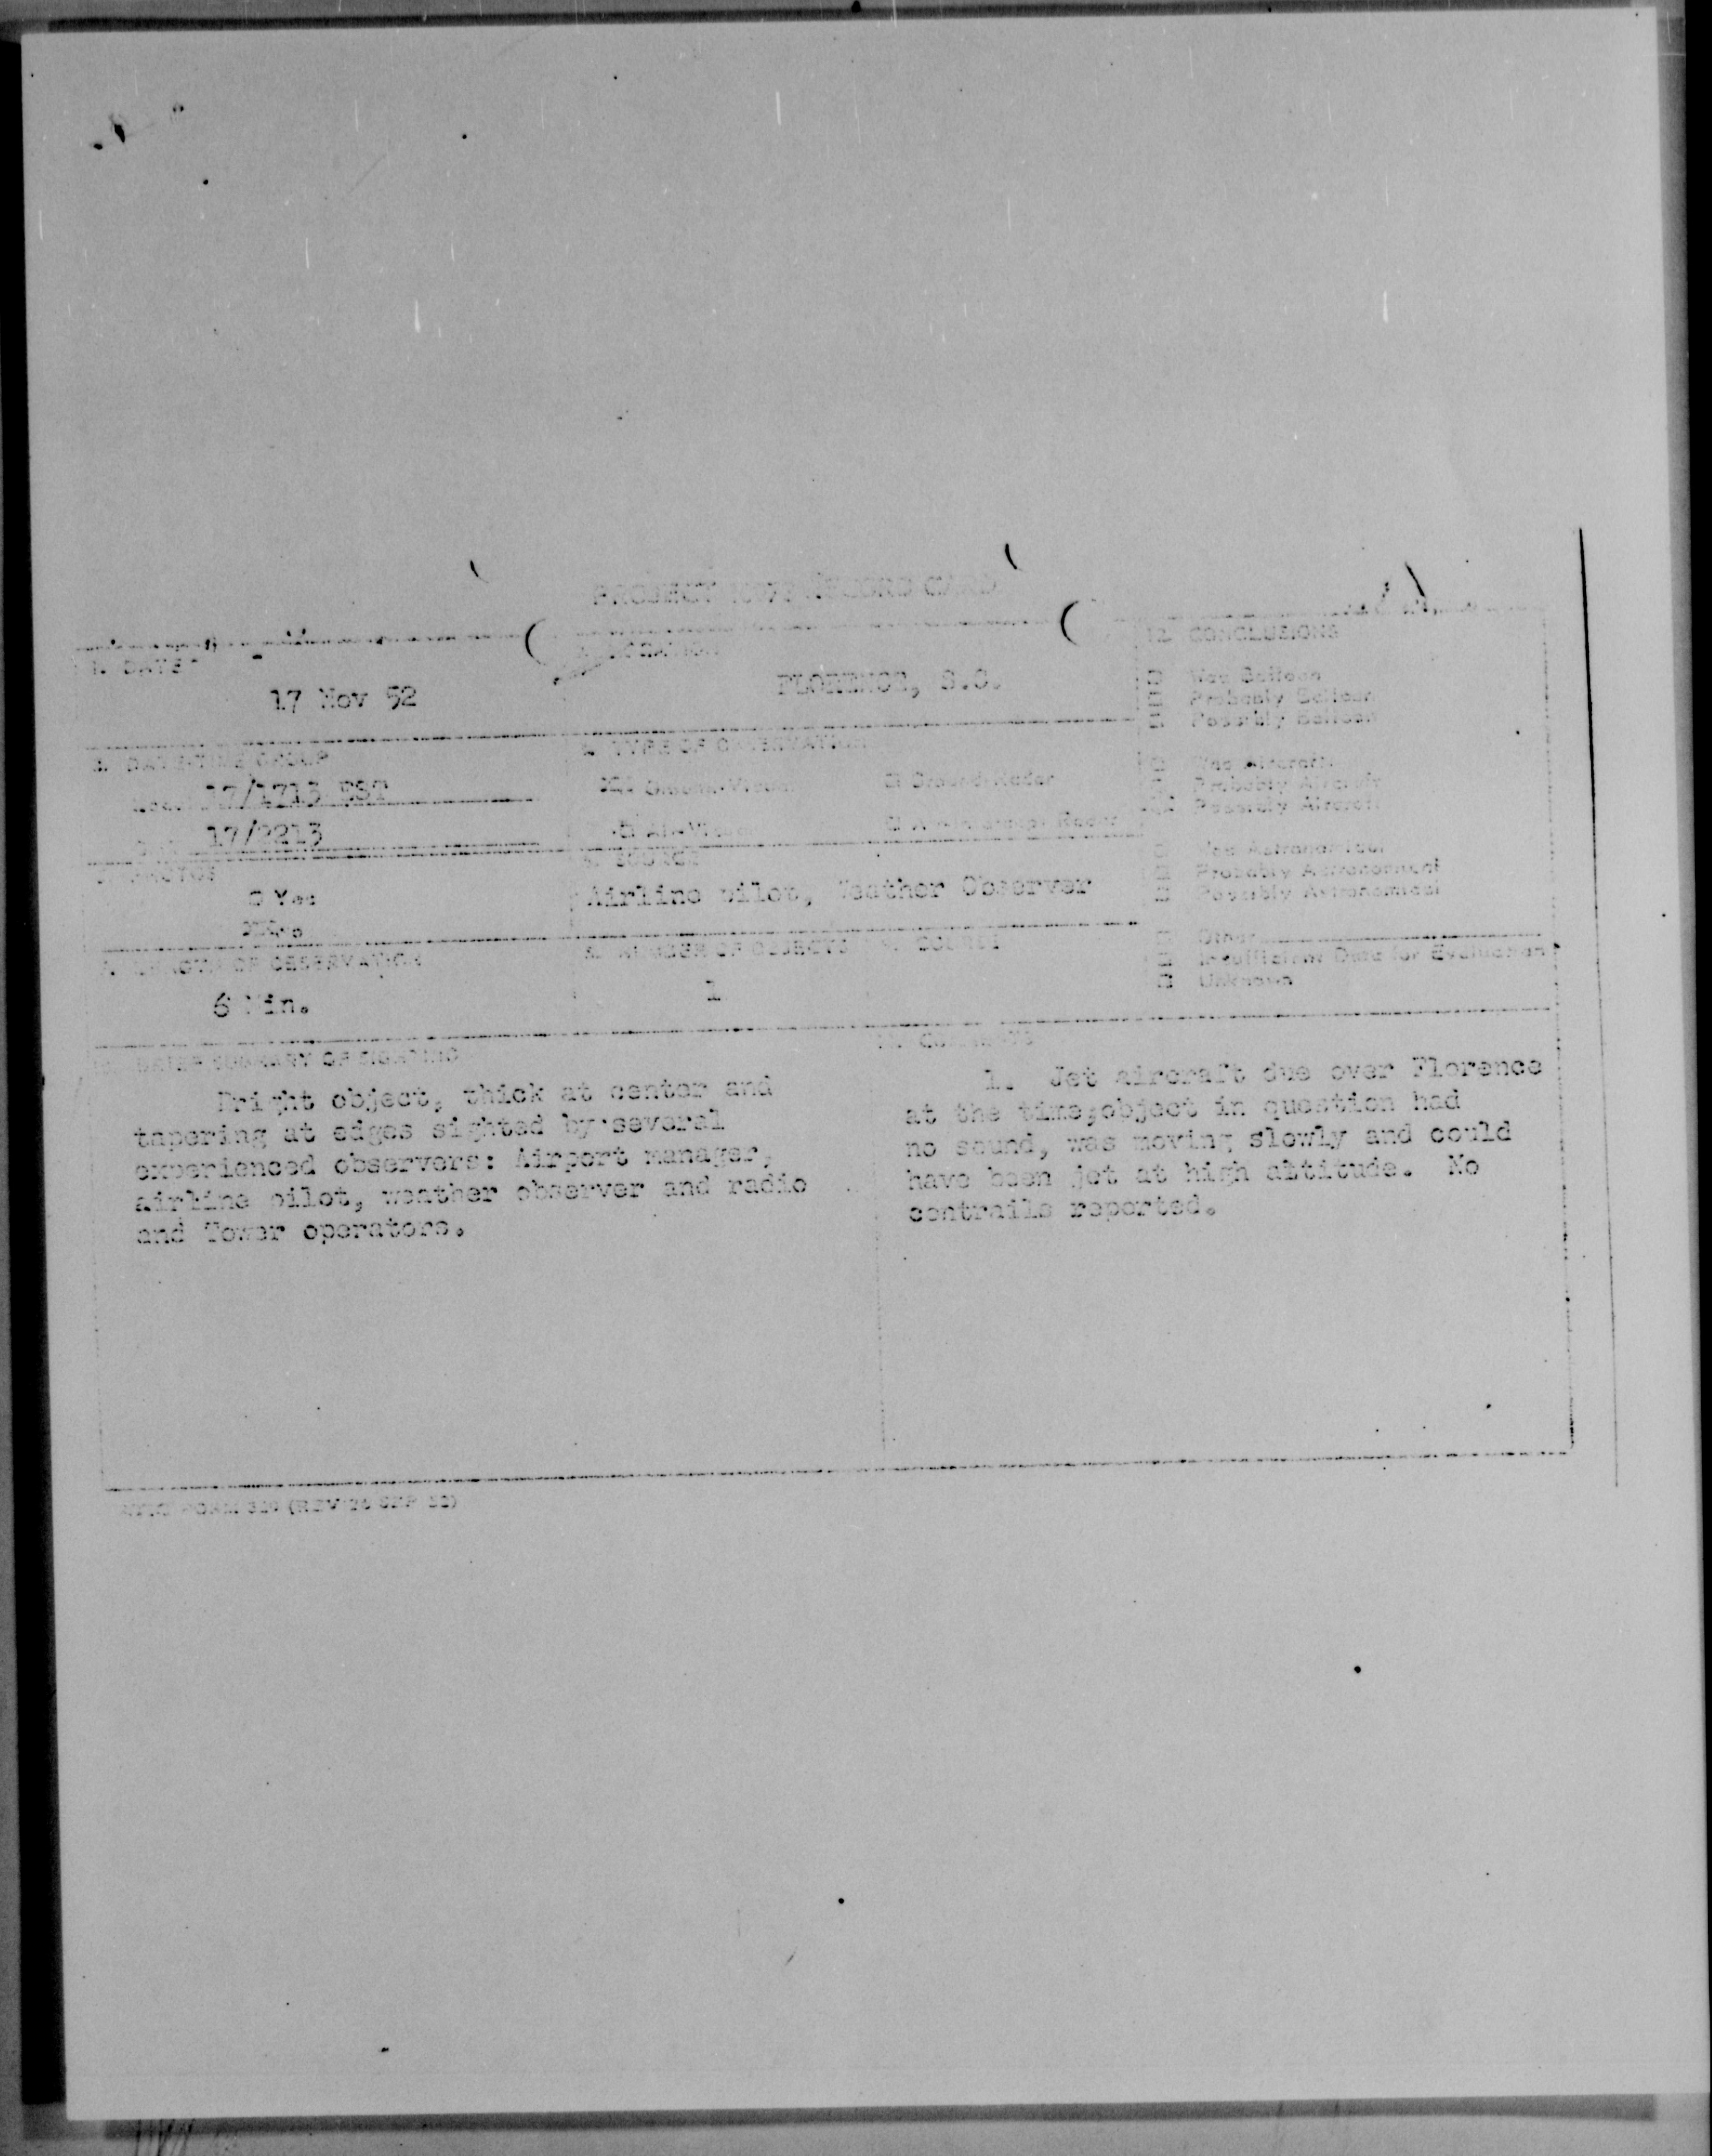 PROJECT RECORD CARD
1. DATE
17 Nov 52
2. LOCATION
FLORENCE, S.C.
12. CONCLUSIONS
□ Was Balloon
□ Probably Balloon
□ Possibly Balloon
3. DATE-TIME GROUP
17/1713 EST
17/2213
4. TYPE OF OBSERVATION
Ground-Visual
□ Ground-Radar
□ Air-Visual
□ Radar
□ Was Aircraft
Probably Aircraft
Possibly Aircraft
5. PHOTOS
□ Yes
No
6. SOURCE
Airline pilot, Weather Observer
□ Was Astronomical
□ Probably Astronomical
□ Possibly Astronomical
7. LENGTH OF OBSERVATION
6 Min.
8. NUMBER OF OBJECTS
1
9. COURSE
□ Other
□ Insufficient Data for Evaluation
□ Unknown
10. BRIEF SUMMARY OF SIGHTING
Bright object, thick at center and
tapering at edges sighted by several
experienced observers: Airport manager,
airline pilot, weather observer and radio
and Tower operators.
11. COMMENTS
1. Jet aircraft due over Florence
at the time;object in question had
no sound, was moving slowly and could
have been jet at high altitude. No
contrails reported.
ATIC FORM 329 (REV 26 SEP 52)